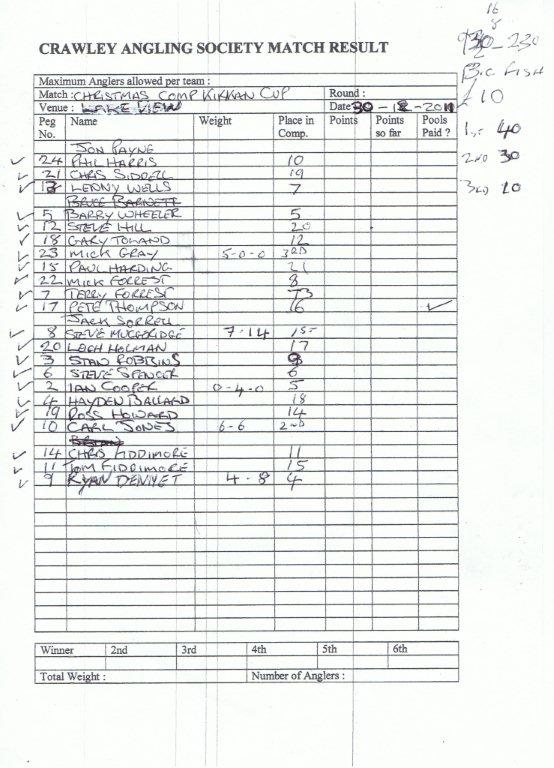 16
8
930 - 230
2
CRAWLEY ANGLING SOCIETY MATCH RESULT
BIG FISH
£10
Maximum Anglers allowed per team :
Match : CHRISTMAS COMP KIRKAN CUP Round :
Venue : LAKE VIEW Date 30-12-2011
Peg No. Name Weight Place in Comp. Points Points so far Pools Paid ?
1st 40
2ND 30
3RD 20
JON PAYNE
✓ 24 PHIL HARRIS 10
✓ 21 CHRIS SIDDELL 19
✓ 13 LENNY WELLS 7
BRUCE BARNETT
✓ 5 BARRY WHEELER 5
✓ 12 STEVE HILL 20
✓ 18 GARY TOWAND 12
✓ 23 MICK GRAY 5-0-0 3RD
✓ 15 PAUL HARDING 21
✓ 22 MICK FORREST 8
✓ 7 TERRY FORREST 13
✓ 17 PETE THOMPSON 16 ✓
JACK SORRELL
✓ 8 STEVE MUGGERIDGE 7-14 1ST
✓ 20 LEIGH HOLMAN 17
✓ 3 STAN ROBBINS 9
✓ 6 STEVE SPENCER 6
✓ 2 IAN COOPER 0-4-0 5
✓ 4 HAYDEN BALLARD 18
✓ 19 ROSS HOWARD 14
✓ 10 CARL JONES 6-6 2ND
BRIAN
✓ 14 CHRIS FIDDIMORE 11
✓ 11 TOM FIDDIMORE 15
✓ 9 RYAN DENNET 4-8 4
Winner 2nd 3rd 4th 5th 6th
Total Weight : Number of Anglers :